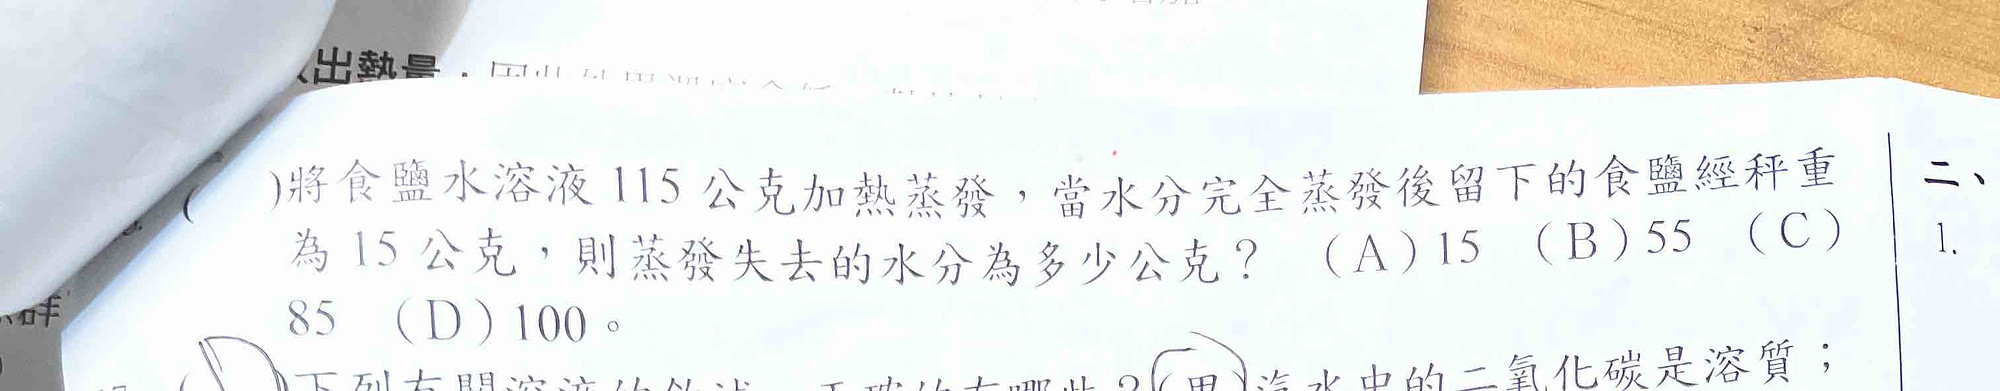 出熱量，因此
二、
( )將食鹽水溶液 115 公克加熱蒸發，當水分完全蒸發後留下的食鹽經秤重
為 15 公克，則蒸發失去的水分為多少公克？ (A) 15 (B) 55 (C)
85 (D) 100。
1.
群
下列有關溶液的敘述，正確的有哪些？(甲)汽水中的二氧化碳是溶質；